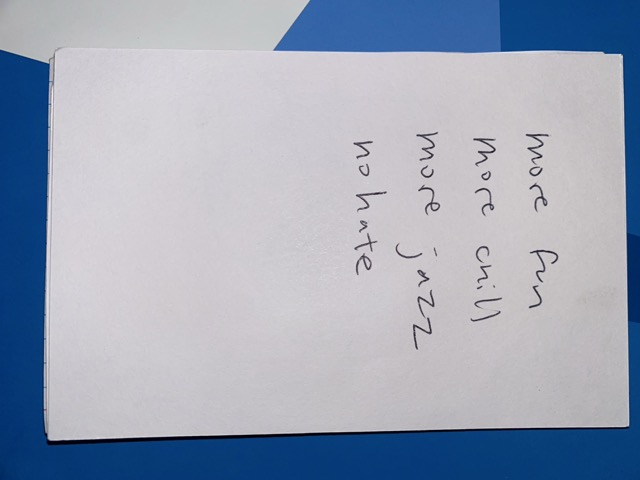 more fun
more chill
more jazz
no hate